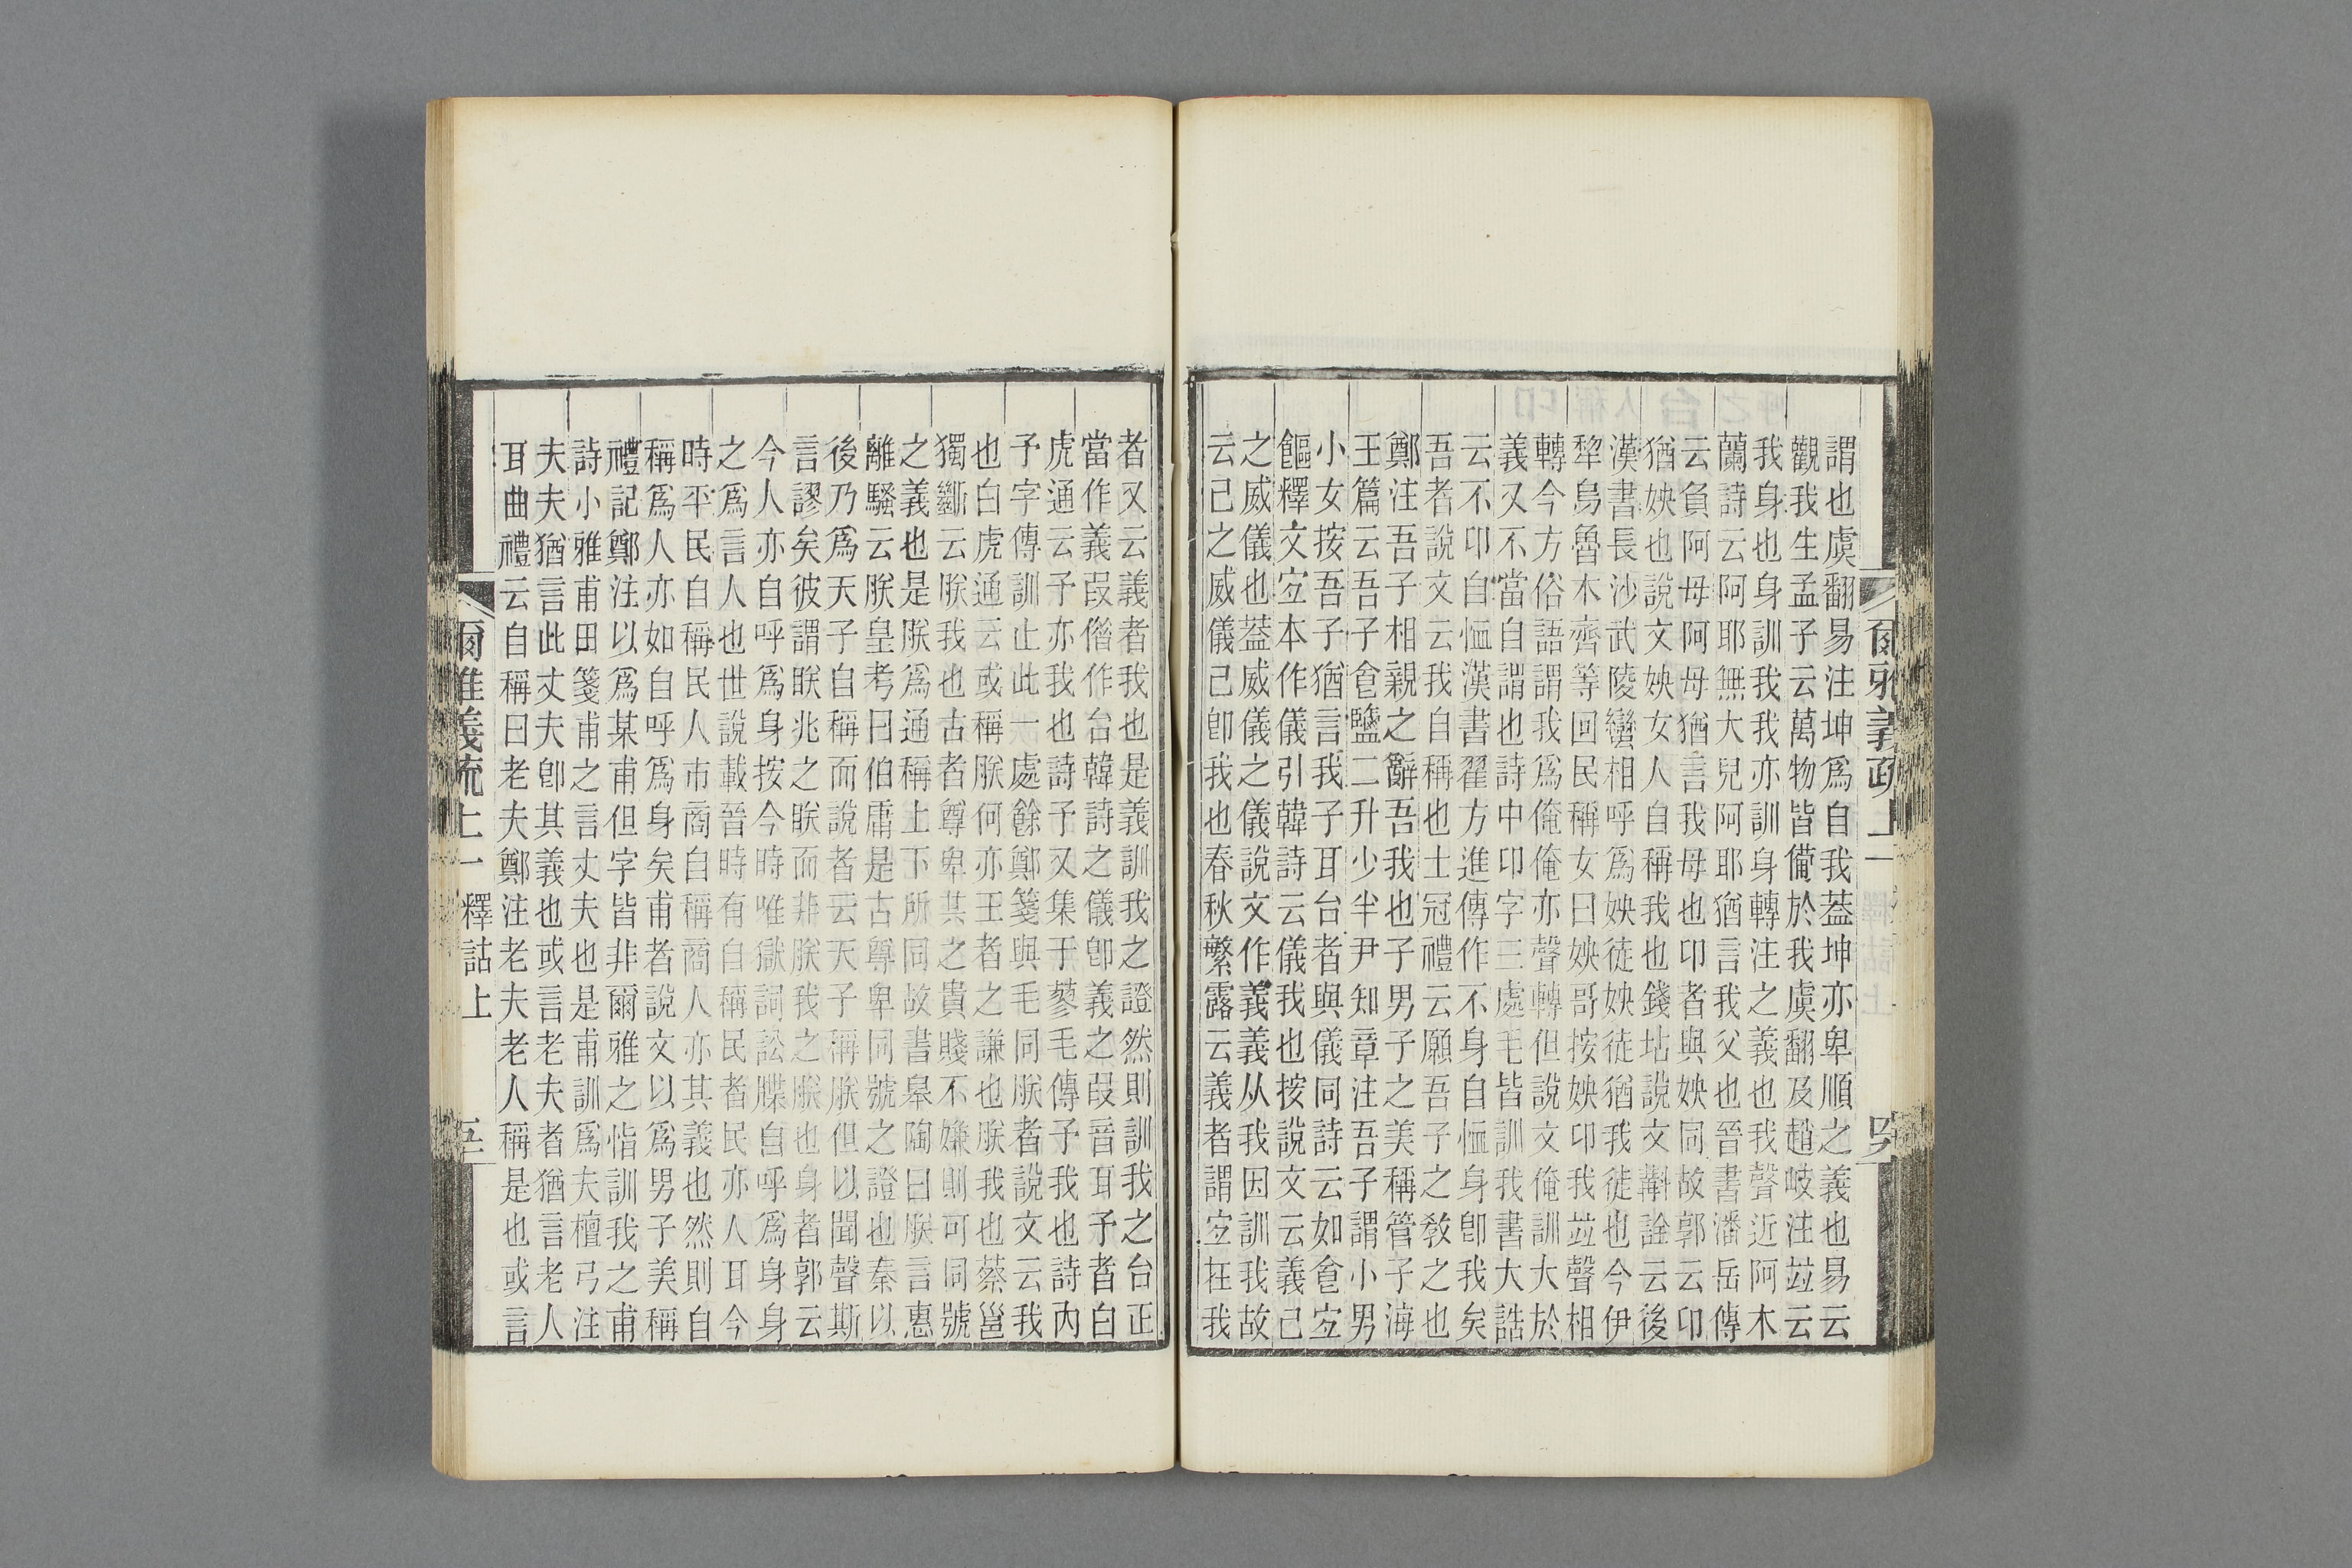 爾雅義疏上一
謂也虞翻易注坤爲自我葢坤亦卑順之義也易云
觀我生孟子云萬物皆僃於我虞翻及趙岐注竝云
我身也身訓我我亦訓身轉注之義也我聲近阿木
蘭詩云阿耶無大兒阿耶猶言我父也晉書潘岳傳
云負阿母阿母猶言我母也卬者與姎同故郭云卬
猶姎也說文姎女人自稱我也錢坫說文斠詮云後
漢書長沙武陵蠻相呼爲姎徒姎徒猶我徒也今伊
犂烏魯木齊等回民稱女曰姎哥按姎卬我竝聲相
轉今方俗語謂我爲俺俺亦聲轉但說文俺訓大於
義又不當自謂也詩中卬字三處毛皆訓我書大誥
云不卬自恤漢書翟方進傳作不身自恤身卽我矣
吾者說文云我自稱也士冠禮云願吾子之敎之也
鄭注吾子相親之辭吾我也子男子之美稱管子海
王篇云吾子食鹽二升少半尹知章注吾子謂小男
小女按吾子猶言我子耳台者與儀同詩云如食宐
饇釋文宐本作儀引韓詩云儀我也按說文云義己
之威儀也葢威儀之儀說文作義義从我因訓我故
云己之威儀己卽我也春秋繁露云義者謂宐在我
者又云義者我也是義訓我之證然則訓我之台正
當作義叚僃作台韓詩之儀卽義之叚音耳予者白
虎通云予亦我也詩予又集于蓼毛傳予我也詩內
予字傳訓止此一處餘鄭箋與毛同朕者說文云我
也白虎通云或稱朕何亦王者之謙也朕我也蔡邕
獨斷云朕我也古者尊卑共之貴賤不嫌則可同號
之義也是朕爲通稱上下所同故書皋陶曰朕言惠
離騷云朕皇考曰伯庸是古尊卑同號之證也秦以
後乃爲天子自稱而說者云天子稱朕但以聞聲斯
言謬矣彼謂眹兆之眹而非朕我之朕也身者郭云
今人亦自呼爲身按今時唯獄詞訟牒自呼爲身身
之爲言人也世說載晉時有自稱民者民亦人耳今
時平民自稱民人市商自稱商人亦其義也然則自
稱爲人亦如自呼爲身矣甫者說文以爲男子美稱
禮記鄭注以爲某甫但字皆非爾雅之恉訓我之甫
詩小雅甫田箋甫之言丈夫也是甫訓爲夫檀弓注
夫夫猶言此丈夫卽其義也或言老夫者猶言老人
耳曲禮云自稱曰老夫鄭注老夫老人稱是也或言
爾雅義疏上一 釋詁上